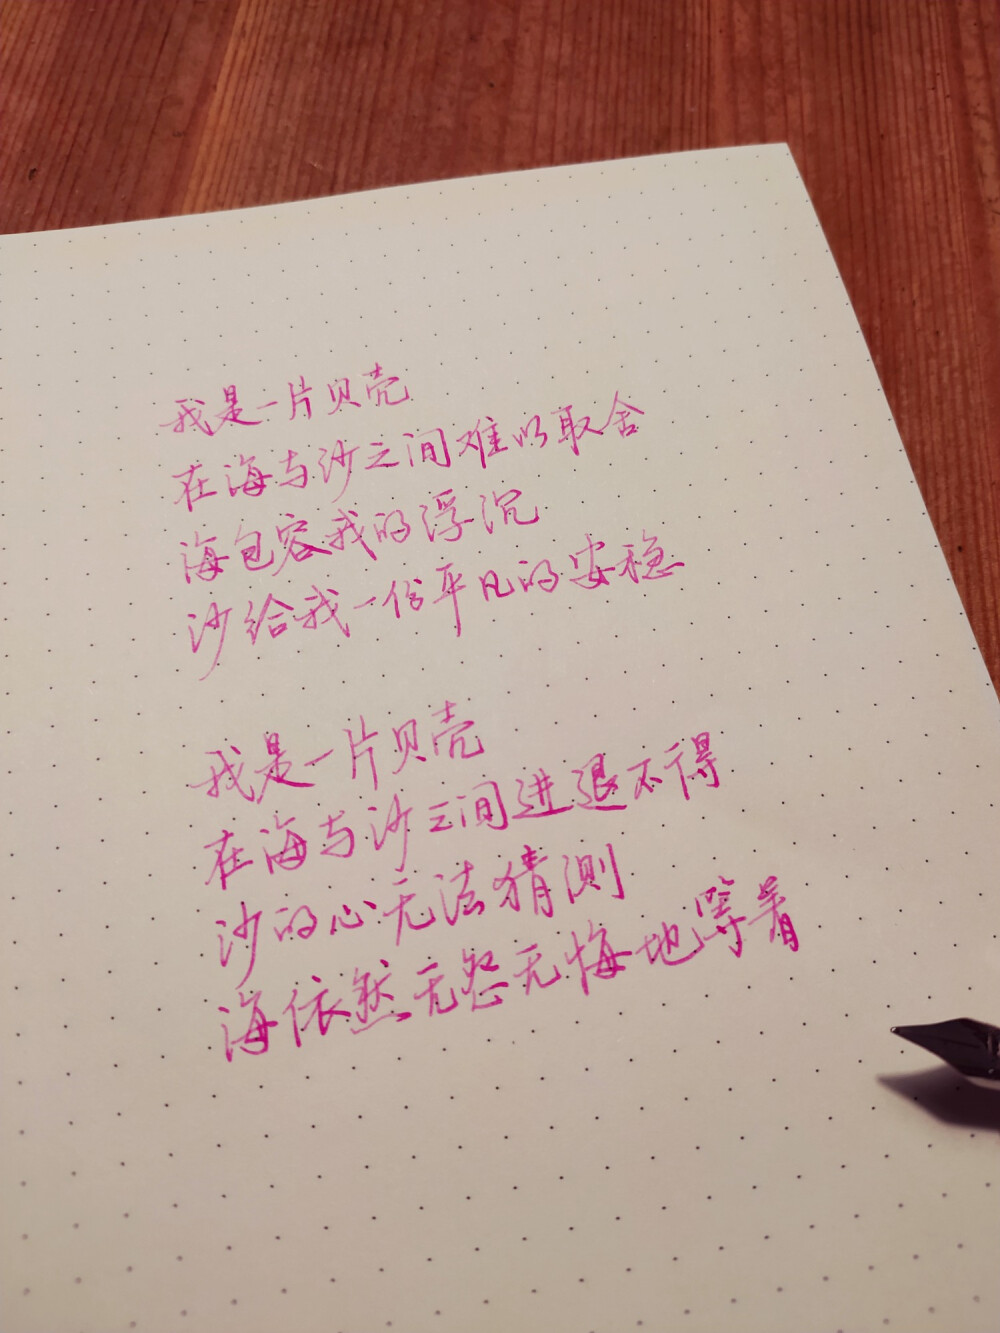 我是一片贝壳
在海与沙之间难以取舍
海包容我的浮沉
沙给我一份平凡的安稳
我是一片贝壳
在海与沙之间进退不得
沙的心无法猜测
海依然无怨无悔地等着